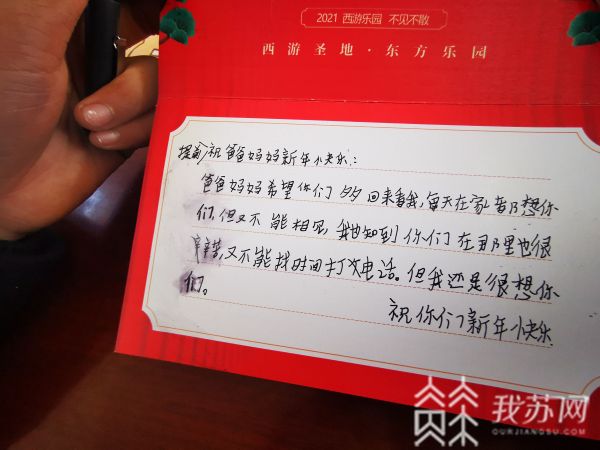 2021 西游乐园 不见不散
西游圣地·东方乐园
提前祝爸爸妈妈新年快乐:
爸爸妈妈希望你们多回来看我,每天在家都想你
们,但又不能相见,我也知到你们在那里也很
辛苦,又不能找时间打次电话。但我还是很想你
们。
祝你们新年快乐
我苏网
OURJIANGSU.COM